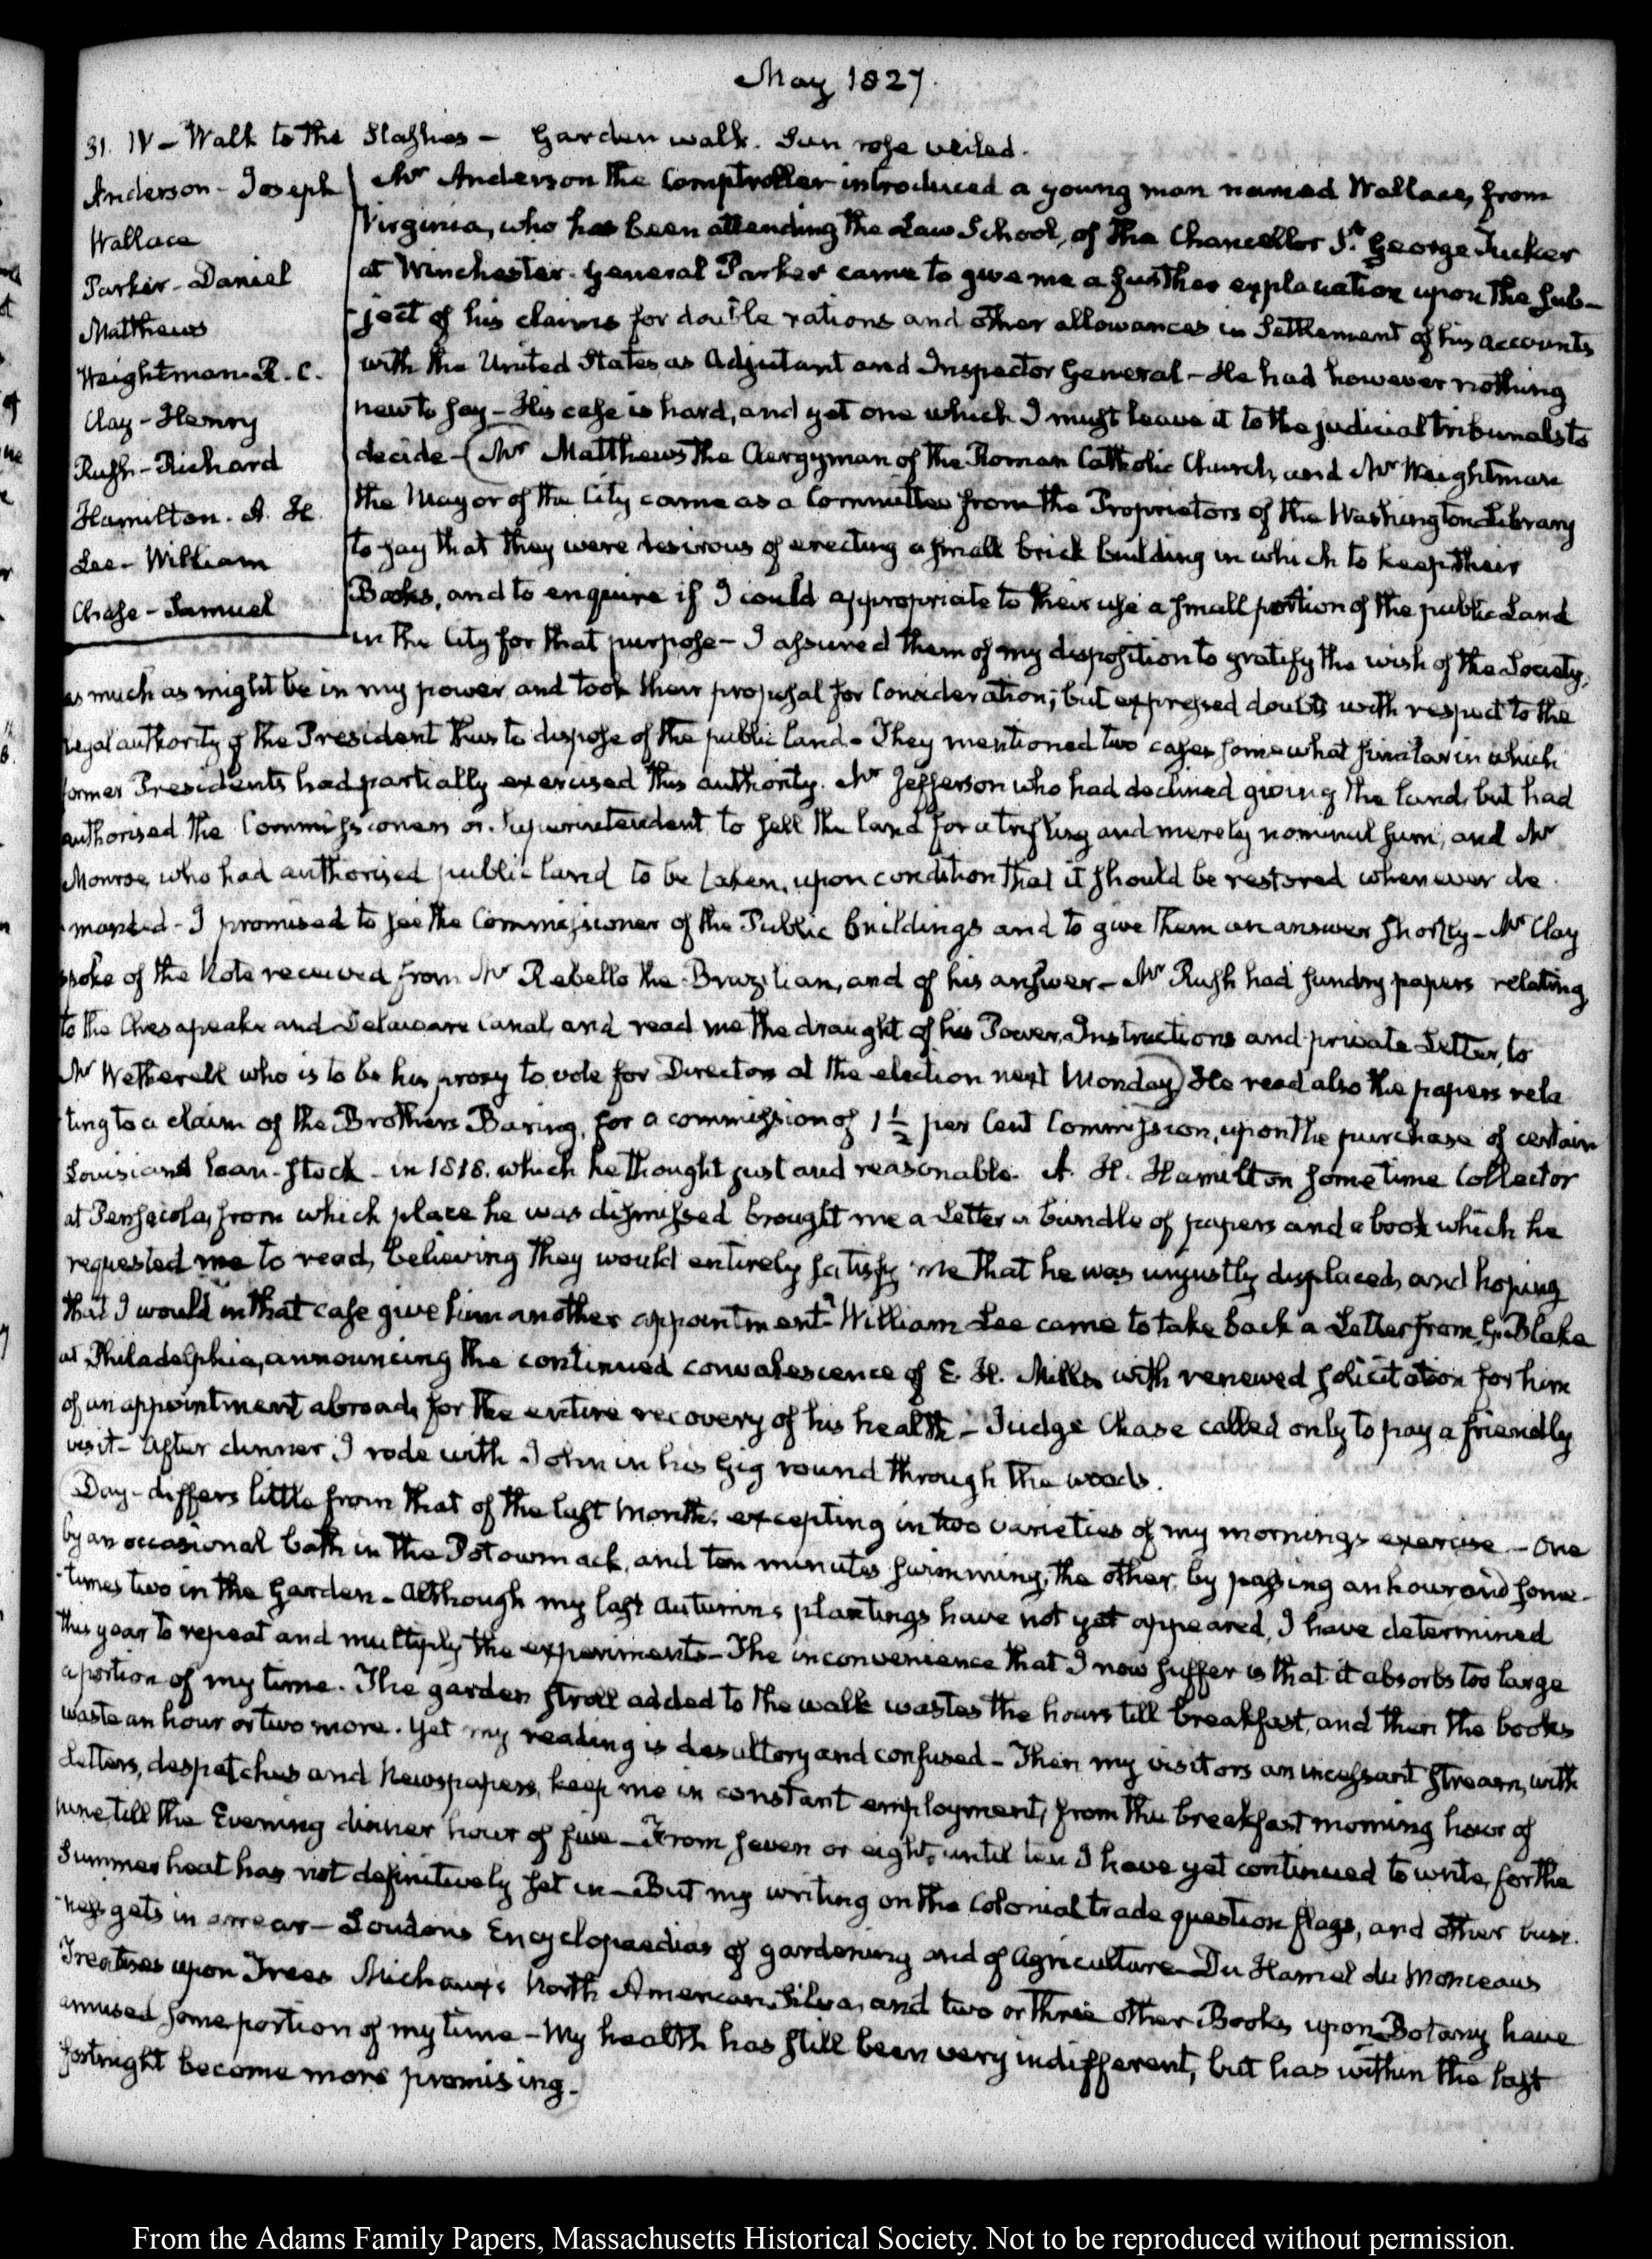 May 1827.
31. IV – Walk to the Slashes – Garden walk. Sun rose veiled.
Anderson – Joseph
Wallace
Parker – Daniel
Matthews
Weightman. R. C.
Clay – Henry
Rush – Richard
Hamilton. A. H.
Lee – William
Chase – Samuel
Mr Anderson the Comptroller introduced a young man named Wallace, from
Virginia, who has been attending the Law School, of the Chancellor St. George Tucker
at Winchester. General Parker came to give me a further explanation upon the sub-
-ject of his claims for double rations and other allowances in Settlement of his accounts
with the United States as Adjutant and Inspector General – He had however nothing
new to say – His case is hard, and yet one which I must leave it to the judicial tribunals to
decide – (Mr Matthews the Clergyman of the Roman Catholic Church, and Mr Weightman
the Mayor of the City came as a Committee from the Proprietors of the Washington Library
to say that they were desirous of erecting a small brick building in which to keep their
Books, and to enquire if I could appropriate to their use a small portion of the public Land
in the City for that purpose – I assured them of my disposition to gratify the wish of the Society,
as much as might be in my power and took their proposal for Consideration; but expressed doubts with respect to the
legal authority of the President thus to dispose of the public land – They mentioned two cases somewhat similar in which
former Presidents had partially exercised this authority. Mr Jefferson who had declined giving the land, but had
authorised the Commissioners or Superintendent to sell the land for a trifling and merely nominal sum, and Mr
Monroe, who had authorised public land to be taken, upon condition that it should be restored whenever de
-manded – I promised to see the Commissioner of the Public buildings and to give them an answer shortly – Mr Clay
spoke of the Note received from Mr Rebello the Brazilian, and of his answer – Mr Rush had sundry papers relating
to the Chesapeake and Delaware Canal, and read me the draught of his Power, Instructions and private Letter, to
Mr Wetherell who is to be his proxy to vote for Directors at the election next Monday) He read also the papers rela
-ting to a claim of the Brothers Baring, for a commission of 1 1/2 per Cent Commission, upon the purchase of certain
Louisiana loan-stock – in 1818. which he thought just and reasonable. A. H. Hamilton sometime Collector
at Pensacola, from which place he was dismissed brought me a Letter a bundle of papers and a book which he
requested me to read, believing they would entirely satisfy me that he was unjustly displaced, and hoping
that I would in that case give him another appointment – William Lee came to take back a Letter from G. Blake
at Philadelphia, announcing the continued convalescence of E. H. Mills with renewed solicitation for him
of an appointment abroad, for the entire recovery of his health – Judge Chase called only to pay a friendly
visit – After dinner I rode with John in his Gig round through the woods.
Day – differs little from that of the last Month, excepting in two varieties of my mornings exercise – One
by an occasional bath in the Potowmack, and ten minutes swimming, the other, by passing an hour and some-
-times two in the Garden – Although my last Autumn's plantings have not yet appeared, I have determined
this year to repeat and multiply the experiments – The inconvenience that I now suffer is that it absorbs too large
a portion of my time. The garden stroll added to the walk wastes the hours till breakfast, and then the books
waste an hour or two more. Yet my reading is desultory and confused – Then my visitors an incessant stream, with
Letters, despatches and Newspapers, keep me in constant employment, from the breakfast morning hour of
nine, till the Evening dinner hour of five – From seven or eight, until ten I have yet continued to write, for the
Summer heat has not definitively set in – But my writing on the Colonial trade question flags, and other busi-
-ness gets in arrear – Loudons Encyclopaedias of gardening and of Agriculture Du Hamel du Monceaus
Treatises upon Trees Michaux's North American Silva, and two or three other Books upon Botany have
amused some portion of my time – My health has still been very indifferent, but has within the last
fortnight become more promising.
From the Adams Family Papers, Massachusetts Historical Society. Not to be reproduced without permission.